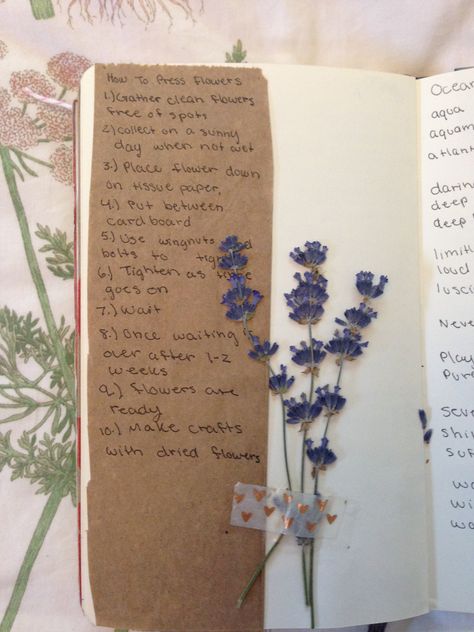 How To Press Flowers
1.) Gather clean flowers
free of spots
2.) collect on a sunny
day when not wet
3.) Place flower down
on tissue paper,
4.) Put between
cardboard
5.) Use wingnuts and
bolts to tighten
6.) Tighten as time
goes on
7.) Wait
8.) Once waiting is
over after 1-2
weeks
9.) flowers are
ready
10.) Make crafts
with dried flowers
Ocean
aqua
aquam
atlant
darin
deep
deep
limitl
loud
lusci
Never
Play
Pure
Seve
shin